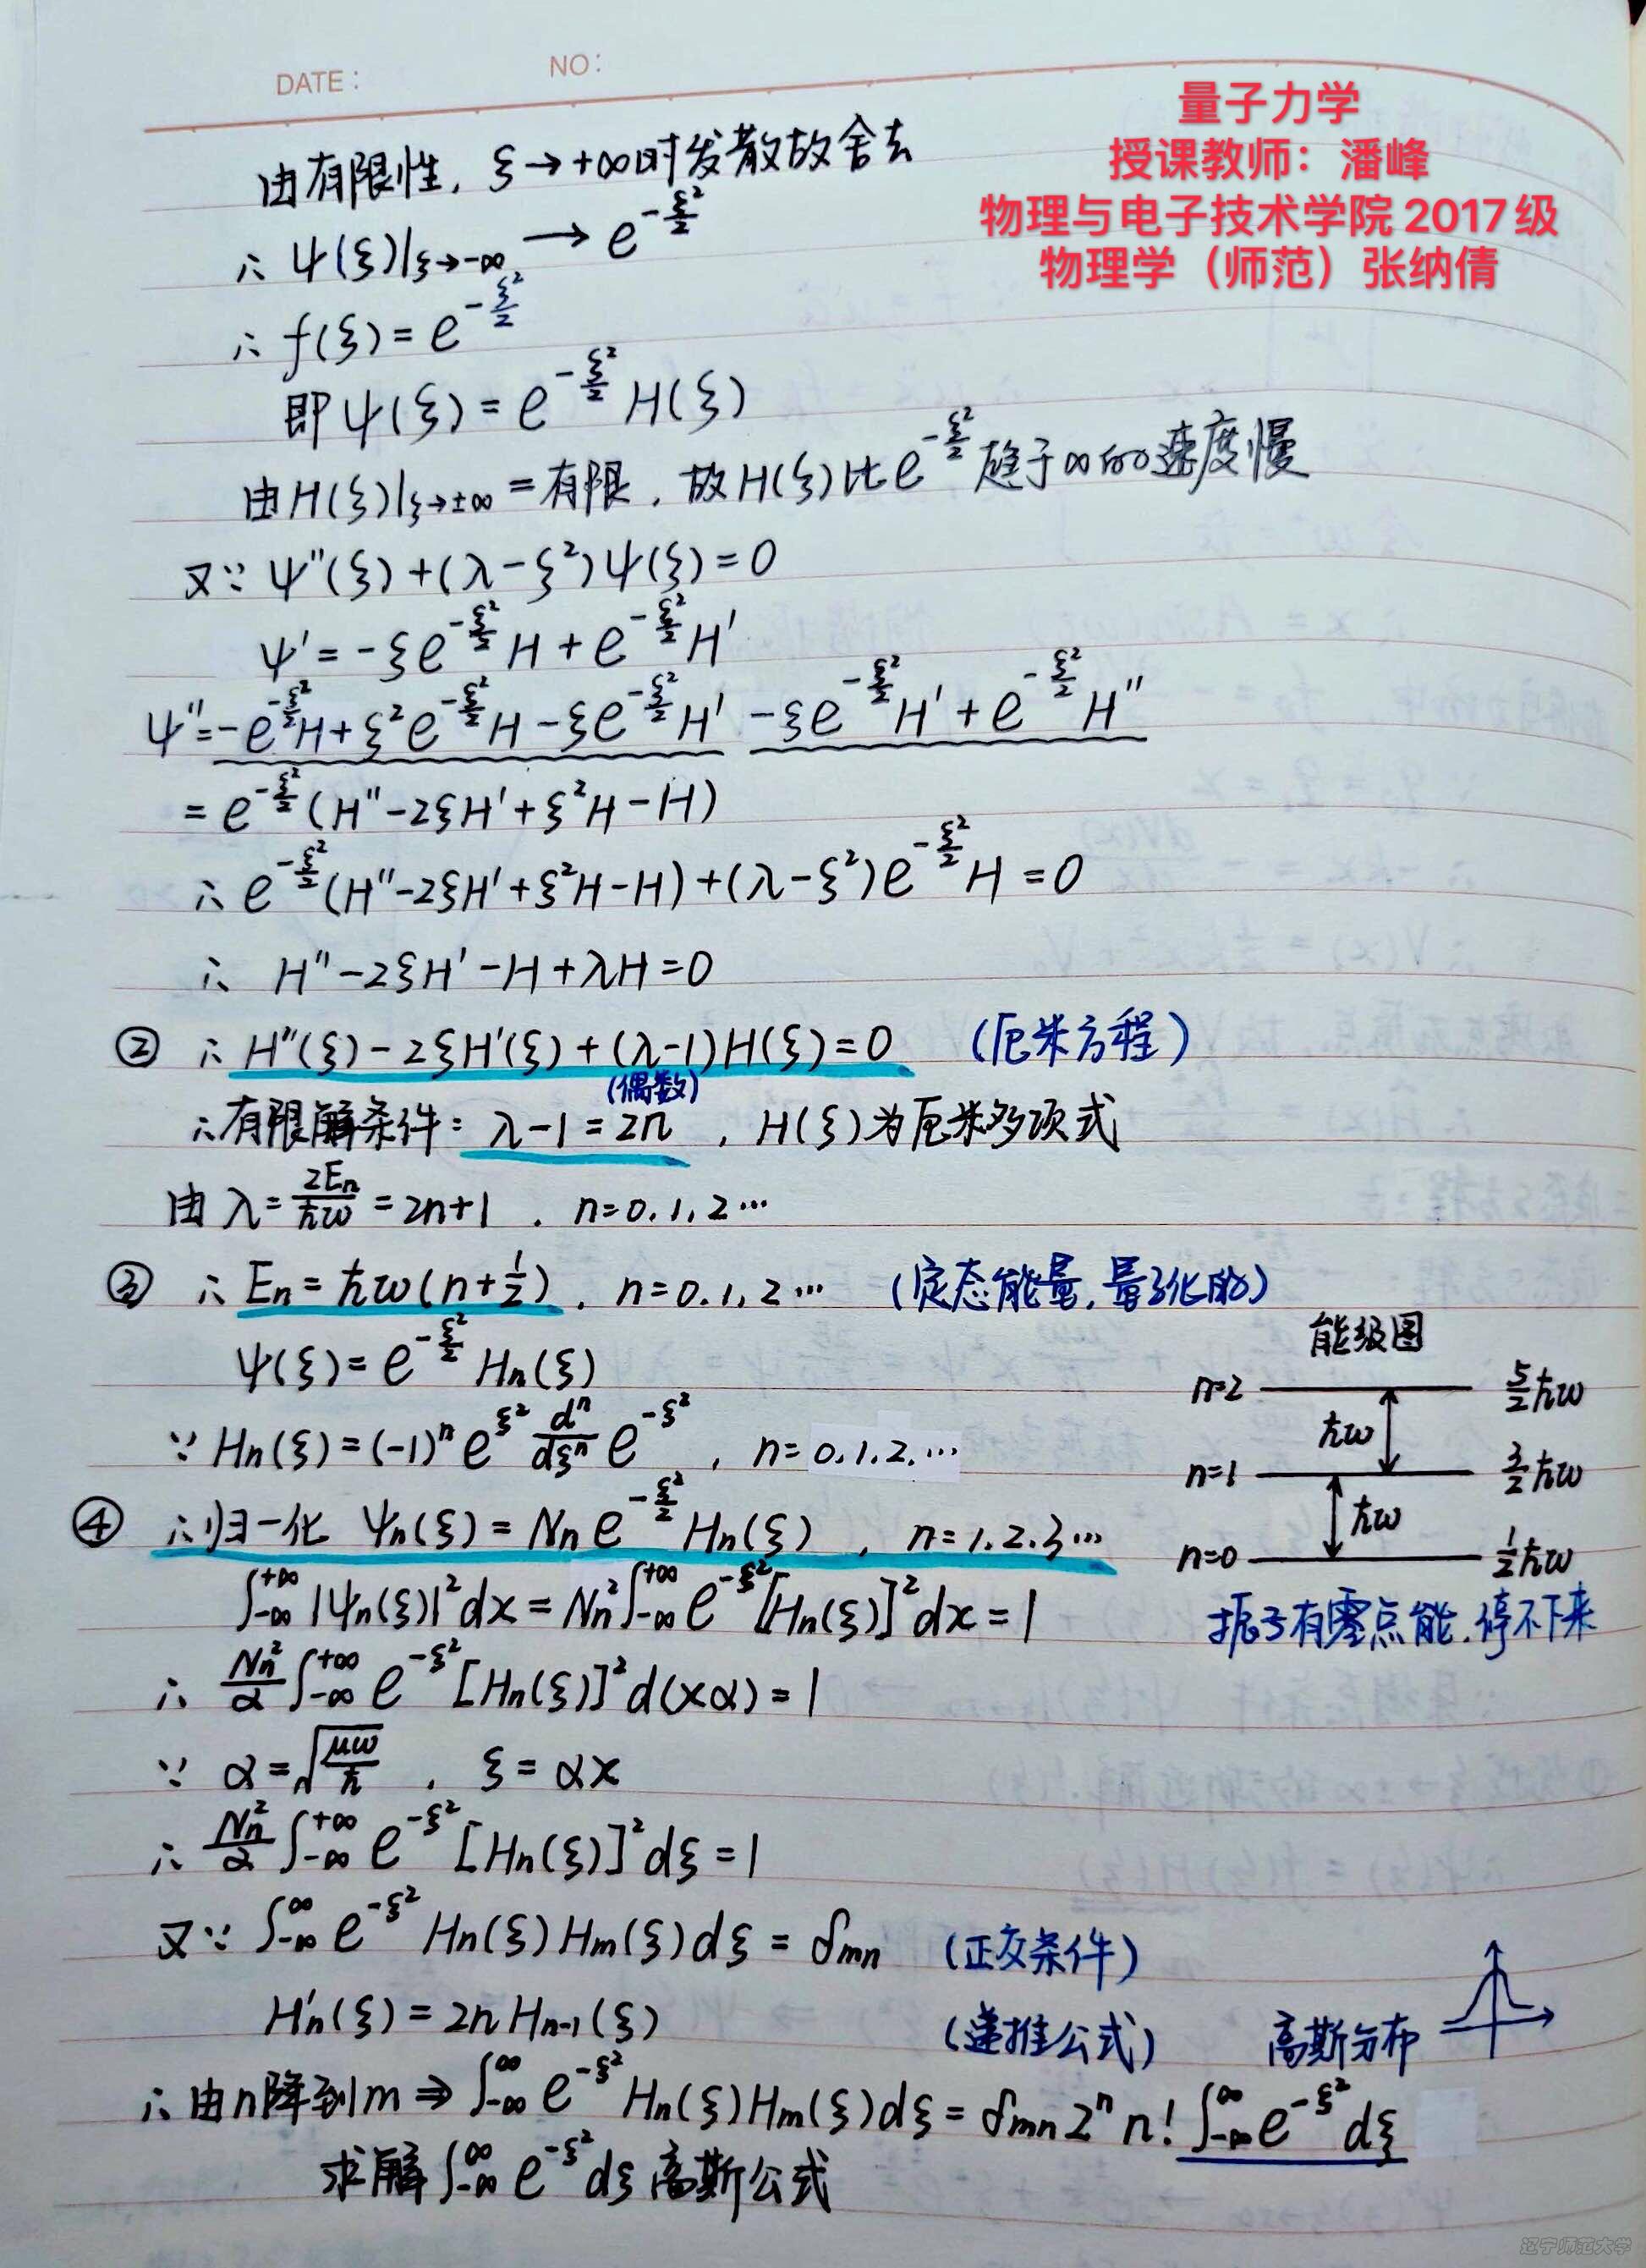 DATE: NO:
量子力学
授课教师：潘峰
物理与电子技术学院 2017 级
物理学（师范）张纳倩
由有限性, ξ→+∞时发散故舍去
∴ ψ(ξ)|ξ→-∞ → e^{-ξ²/2}
∴ f(ξ) = e^{-ξ²/2}
即 ψ(ξ) = e^{-ξ²/2} H(ξ)
由 H(ξ)|ξ→±∞ = 有限, 故 H(ξ) 比 e^{-ξ²/2} 趋于∞的速度慢
又∵ ψ''(ξ) + (λ-ξ²)ψ(ξ) = 0
ψ' = -ξe^{-ξ²/2} H + e^{-ξ²/2} H'
ψ'' = -e^{-ξ²/2}H + ξ²e^{-ξ²/2}H - ξe^{-ξ²/2}H' - ξe^{-ξ²/2}H' + e^{-ξ²/2}H''
= e^{-ξ²/2}(H'' - 2ξH' + ξ²H - H)
∴ e^{-ξ²/2}(H'' - 2ξH' + ξ²H - H) + (λ-ξ²)e^{-ξ²/2}H = 0
∴ H'' - 2ξH' - H + λH = 0
② ∴ H''(ξ) - 2ξH'(ξ) + (λ-1)H(ξ) = 0 (厄米方程)
(偶数)
∴有限解条件: λ-1 = 2n , H(ξ)为厄米多项式
由 λ = 2En/ħω = 2n+1 , n=0,1,2…
③ ∴ En = ħω(n+1/2) , n=0,1,2… (定态能量, 量子化的)
ψ(ξ) = e^{-ξ²/2} Hn(ξ)
∵ Hn(ξ) = (-1)^n e^{ξ²} d^n/dξ^n e^{-ξ²} , n=0,1,2,…
能级图
n=2 5/2 ħω
ħω
n=1 3/2 ħω
ħω
n=0 1/2 ħω
振子有零点能,停不下来
④ ∴归一化 ψn(ξ) = Nn e^{-ξ²/2} Hn(ξ) , n=1,2,3…
∫_{-∞}^{+∞} |ψn(ξ)|² dx = Nn² ∫_{-∞}^{+∞} e^{-ξ²} [Hn(ξ)]² dx = 1
∴ Nn²/α ∫_{-∞}^{+∞} e^{-ξ²} [Hn(ξ)]² d(xα) = 1
∵ α = √(μω/ħ) , ξ = αx
∴ Nn²/α ∫_{-∞}^{+∞} e^{-ξ²} [Hn(ξ)]² dξ = 1
又∵ ∫_{-∞}^{∞} e^{-ξ²} Hn(ξ) Hm(ξ) dξ = δmn (正交条件)
H'n(ξ) = 2n Hn-1(ξ) (递推公式) 高斯分布
∴ 由n降到m ⇒ ∫_{-∞}^{∞} e^{-ξ²} Hn(ξ) Hm(ξ) dξ = δmn 2^n n! ∫_{-∞}^{∞} e^{-ξ²} dξ
求解 ∫_{-∞}^{∞} e^{-ξ²} dξ 高斯公式
辽宁师范大学